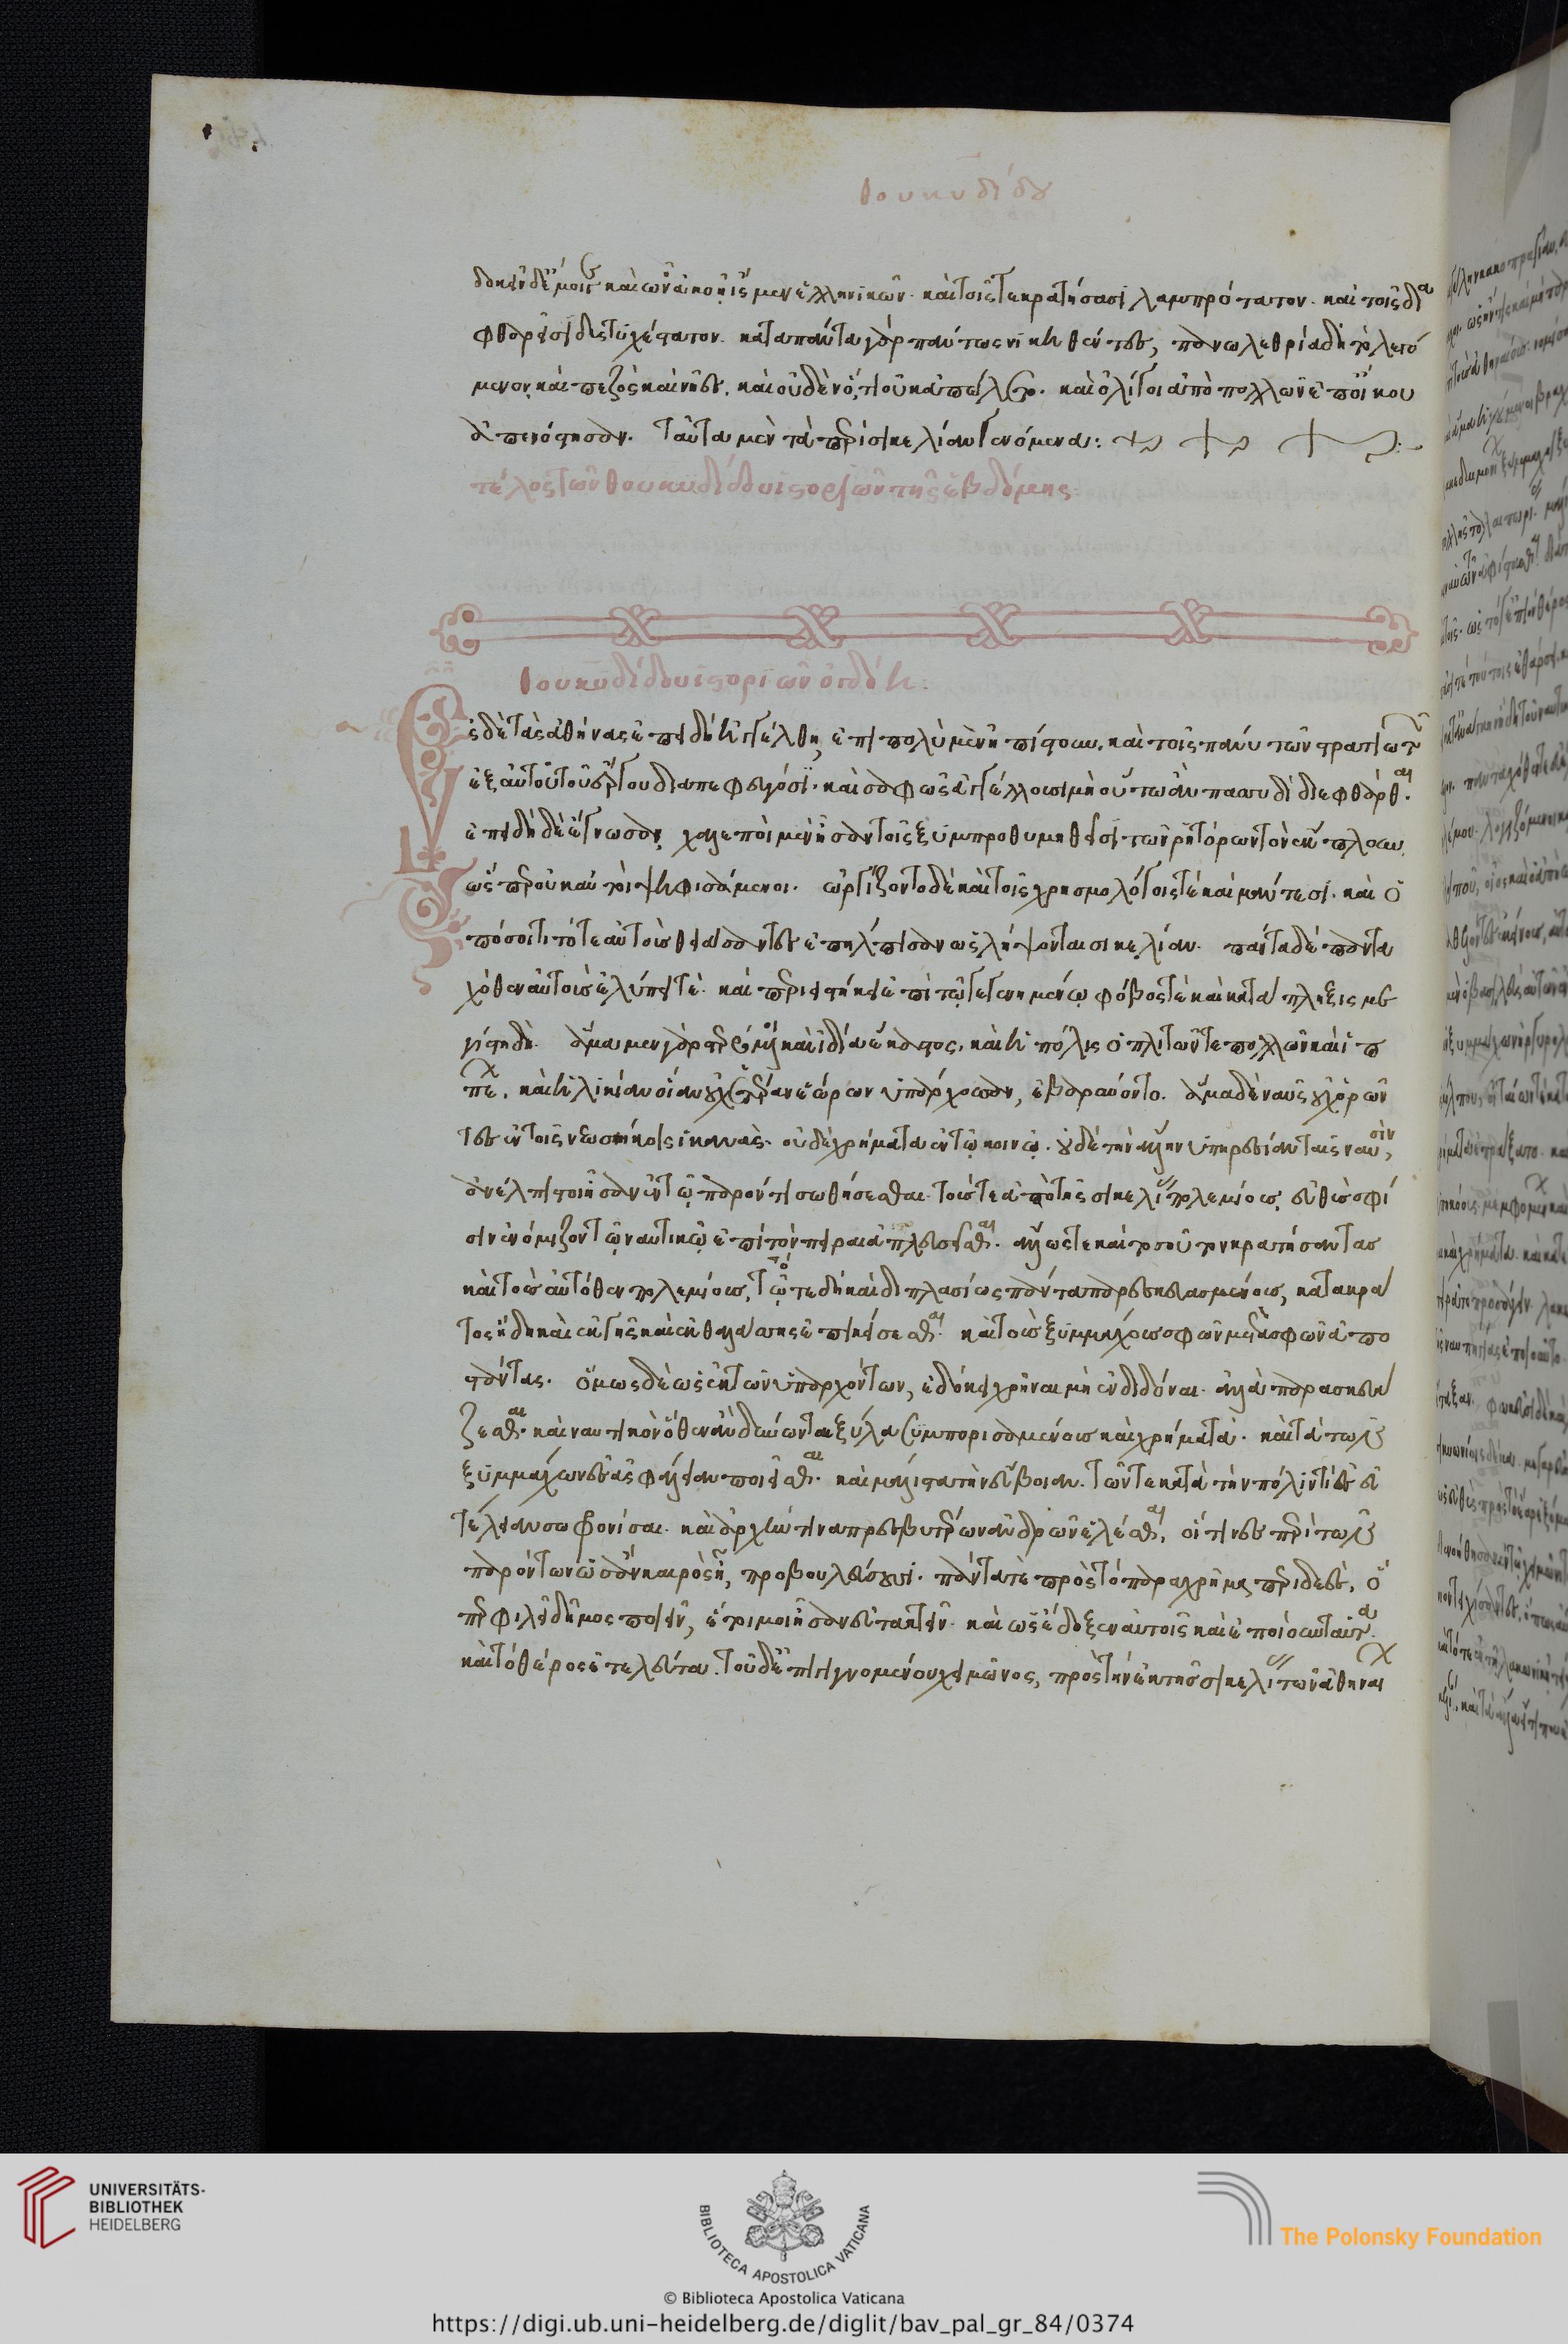 θουκυδίδου
δοκεῖν δ' ἔμοιγε καὶ ὧν ἀκοῇ ἴσμεν ἑλληνικῶν. καὶ τοῖς τε κρατήσασι λαμπρότατον. καὶ τοῖς δια
φθαρεῖσι δυστυχέστατον. κατὰ πάντα γὰρ πάντως νικηθέντες, πανωλεθρία δὴ τὸ λεγό
μενον, καὶ πεζὸς καὶ νῆες. καὶ οὐδὲν ὅ,τι οὐκ ἀπώλετο. καὶ ὀλίγοι ἀπὸ πολλῶν ἐπ' οἴκου
ἀπενόστησαν. ταῦτα μὲν τὰ περὶ σικελίαν γενόμενα:
τέλος τῶν θουκυδίδου ἱστοριῶν τῆς ἑβδόμης:
θουκυδίδου ἱστοριῶν ὀγδόη:
Ἐς δὲ τὰς ἀθήνας ἐπειδὴ ἠγγέλθη, ἐπὶ πολὺ μὲν ἠπίστουν. καὶ τοῖς πάνυ τῶν στρατιωτῶν
ἐξ αὐτοῦ τοῦ ἔργου διαπεφευγόσι. καὶ σαφῶς ἀγγέλλουσι μὴ οὕτω ἂν πασυδὶ διεφθάρθαι.
ἐπειδὴ δὲ ἔγνωσαν, χαλεποὶ μὲν ἦσαν τοῖς ξυμπροθυμηθεῖσι τῶν ῥητόρων τὸν ἔκπλουν,
ὥσπερ οὐκ αὐτοὶ ψηφισάμενοι. ὠργίζοντο δὲ καὶ τοῖς χρησμολόγοις τε καὶ μάντεσι. καὶ ὁ
πόσοι τι τότε αὐτοὺς θειάσαντες ἐπήλπισαν ὡς λήψονται σικελίαν. πάντα δὲ παντα
χόθεν αὐτοὺς ἐλύπει τὲ. καὶ περιειστήκει ἐπὶ τῷ γεγενημένῳ φόβος τὲ καὶ κατάπληξις με
γίστη δὴ. ἅμα μὲν γὰρ στερόμενοι καὶ ἰδία ἕκαστος, καὶ ἡ πόλις ὁπλιτῶν τε πολλῶν καὶ ἱπ
πέων, καὶ ἡλικίαν οἵαν οὐχ ἑτέραν ἑώρων ὑπάρχουσαν, ἐβαρύνοντο. ἅμα δὲ ναῦς οὐχ ὁρῶν
τες ἐν τοῖς νεωσοίκοις ἱκανὰς. οὐδὲ χρήματα ἐν τῷ κοινῷ. οὐδὲ τὴν ἄλλην ὑπηρεσίαν ταῖς ναυσὶν,
ἀνέλπιστοι ἦσαν ἐν τῷ παρόντι σωθήσεσθαι. τούς τε ἀπὸ τῆς σικελίας πολεμίους, εὐθὺς σφί
σιν ἐνόμιζον τῷ ναυτικῷ ἐπὶ τὸν πειραιᾶ πλευσεῖσθαι. ἄλλως τε καὶ τοσοῦτον κρατήσαντας
καὶ τοὺς αὐτόθεν πολεμίους, τότε δὴ καὶ διπλασίως πάντα παρεσκευασμένους, κατὰ κρά
τος ἤδη καὶ ἐκ γῆς καὶ ἐκ θαλάσσης ἐπικείσεσθαι. καὶ τοὺς ξυμμάχους σφῶν μετ' αὐτῶν ἀπο
στάντας. ὅμως δὲ ὡς ἐκ τῶν ὑπαρχόντων, ἐδόκει χρῆναι μὴ ἐνδιδόναι. ἀλλὰ παρασκευά
ζεσθαι. καὶ ναυτικὸν ὅθεν ἂν δύνωνται ξύλα ξυμπορισαμένους καὶ χρήματα. καὶ τὰ τῶν
ξυμμάχων ἐς ἀσφάλειαν ποιεῖσθαι. καὶ μάλιστα τὴν εὔβοιαν. τῶν τε κατὰ τὴν πόλιν τι ἐς εὐ
τέλειαν σωφρονίσαι. καὶ ἀρχήν τινα πρεσβυτέρων ἀνδρῶν ἑλέσθαι, οἵτινες περὶ τῶν
παρόντων ὡς ἂν καιρὸς ᾖ, προβουλεύσουσι. πάντα τὲ πρὸς τὸ παραχρῆμα περιδεὲς, ὅ
περ φιλεῖ δῆμος ποιεῖν, ἑτοῖμοι ἦσαν εὐτακτεῖν. καὶ ὡς ἔδοξεν αὐτοῖς καὶ ἐποίουν ταῦτα.
καὶ τὸ θέρος ἐτελεύτα. τοῦ δ' ἐπιγιγνομένου χειμῶνος, πρὸς τὴν ἐκ τῆς σικελίας τῶν ἀθηναί
UNIVERSITÄTS-
BIBLIOTHEK
HEIDELBERG
BIBLIOTECA APOSTOLICA VATICANA
The Polonsky Foundation
© Biblioteca Apostolica Vaticana
https://digi.ub.uni-heidelberg.de/diglit/bav_pal_gr_84/0374